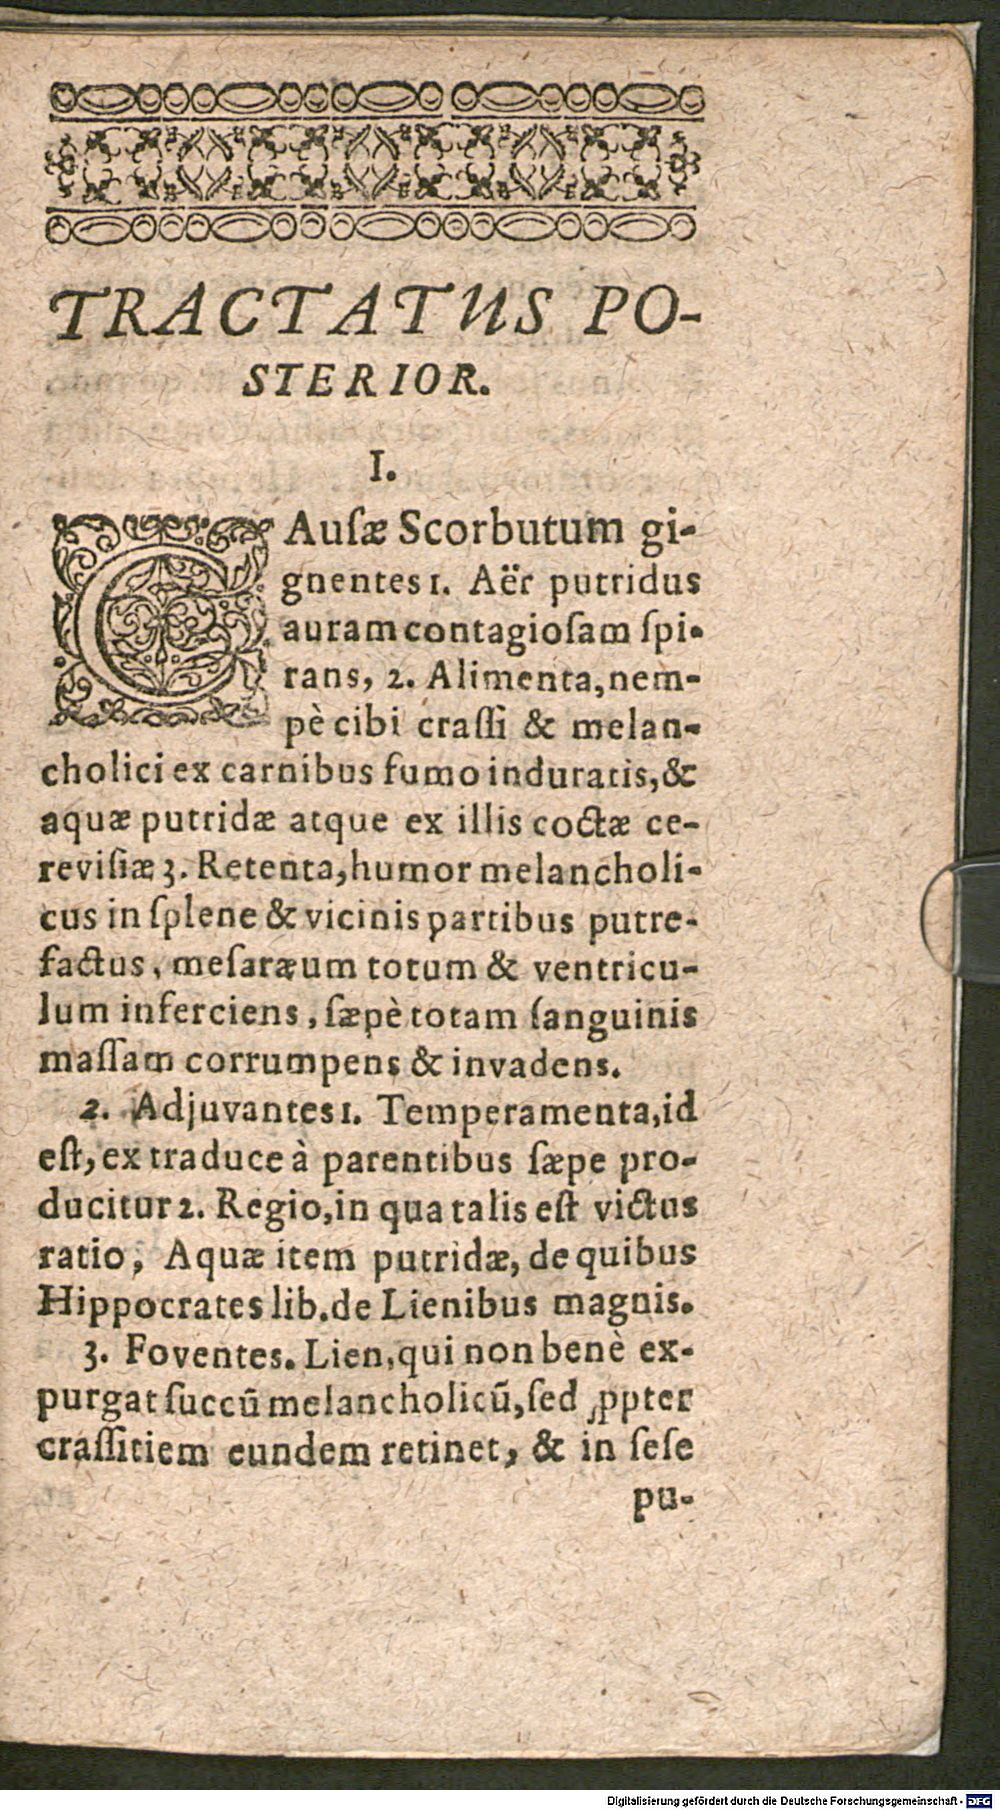 TRACTATUS PO-
STERIOR.
I.
CAuſæ Scorbutum gi-
gnentes 1. Aër putridus
auram contagioſam ſpi-
rans, 2. Alimenta, nem-
pè cibi craſſi & melan-
cholici ex carnibus fumo induratis, &
aquæ putridæ atque ex illis coctæ ce-
reviſiæ 3. Retenta, humor melancholi-
cus in ſplene & vicinis partibus putre-
factus, meſaræum totum & ventricu-
lum inferciens, ſæpè totam ſanguinis
maſſam corrumpens & invadens.
2. Adjuvantes 1. Temperamenta, id
eſt, ex traduce à parentibus ſæpe pro-
ducitur 2. Regio, in qua talis eſt victus
ratio, Aquæ item putridæ, de quibus
Hippocrates lib. de Lienibus magnis.
3. Foventes. Lien, qui non benè ex-
purgat ſuccū melancholicū, ſed ꝓpter
craſſitiem eundem retinet, & in ſeſe
pu-
Digitalisierung gefördert durch die Deutsche Forschungsgemeinschaft - DFG